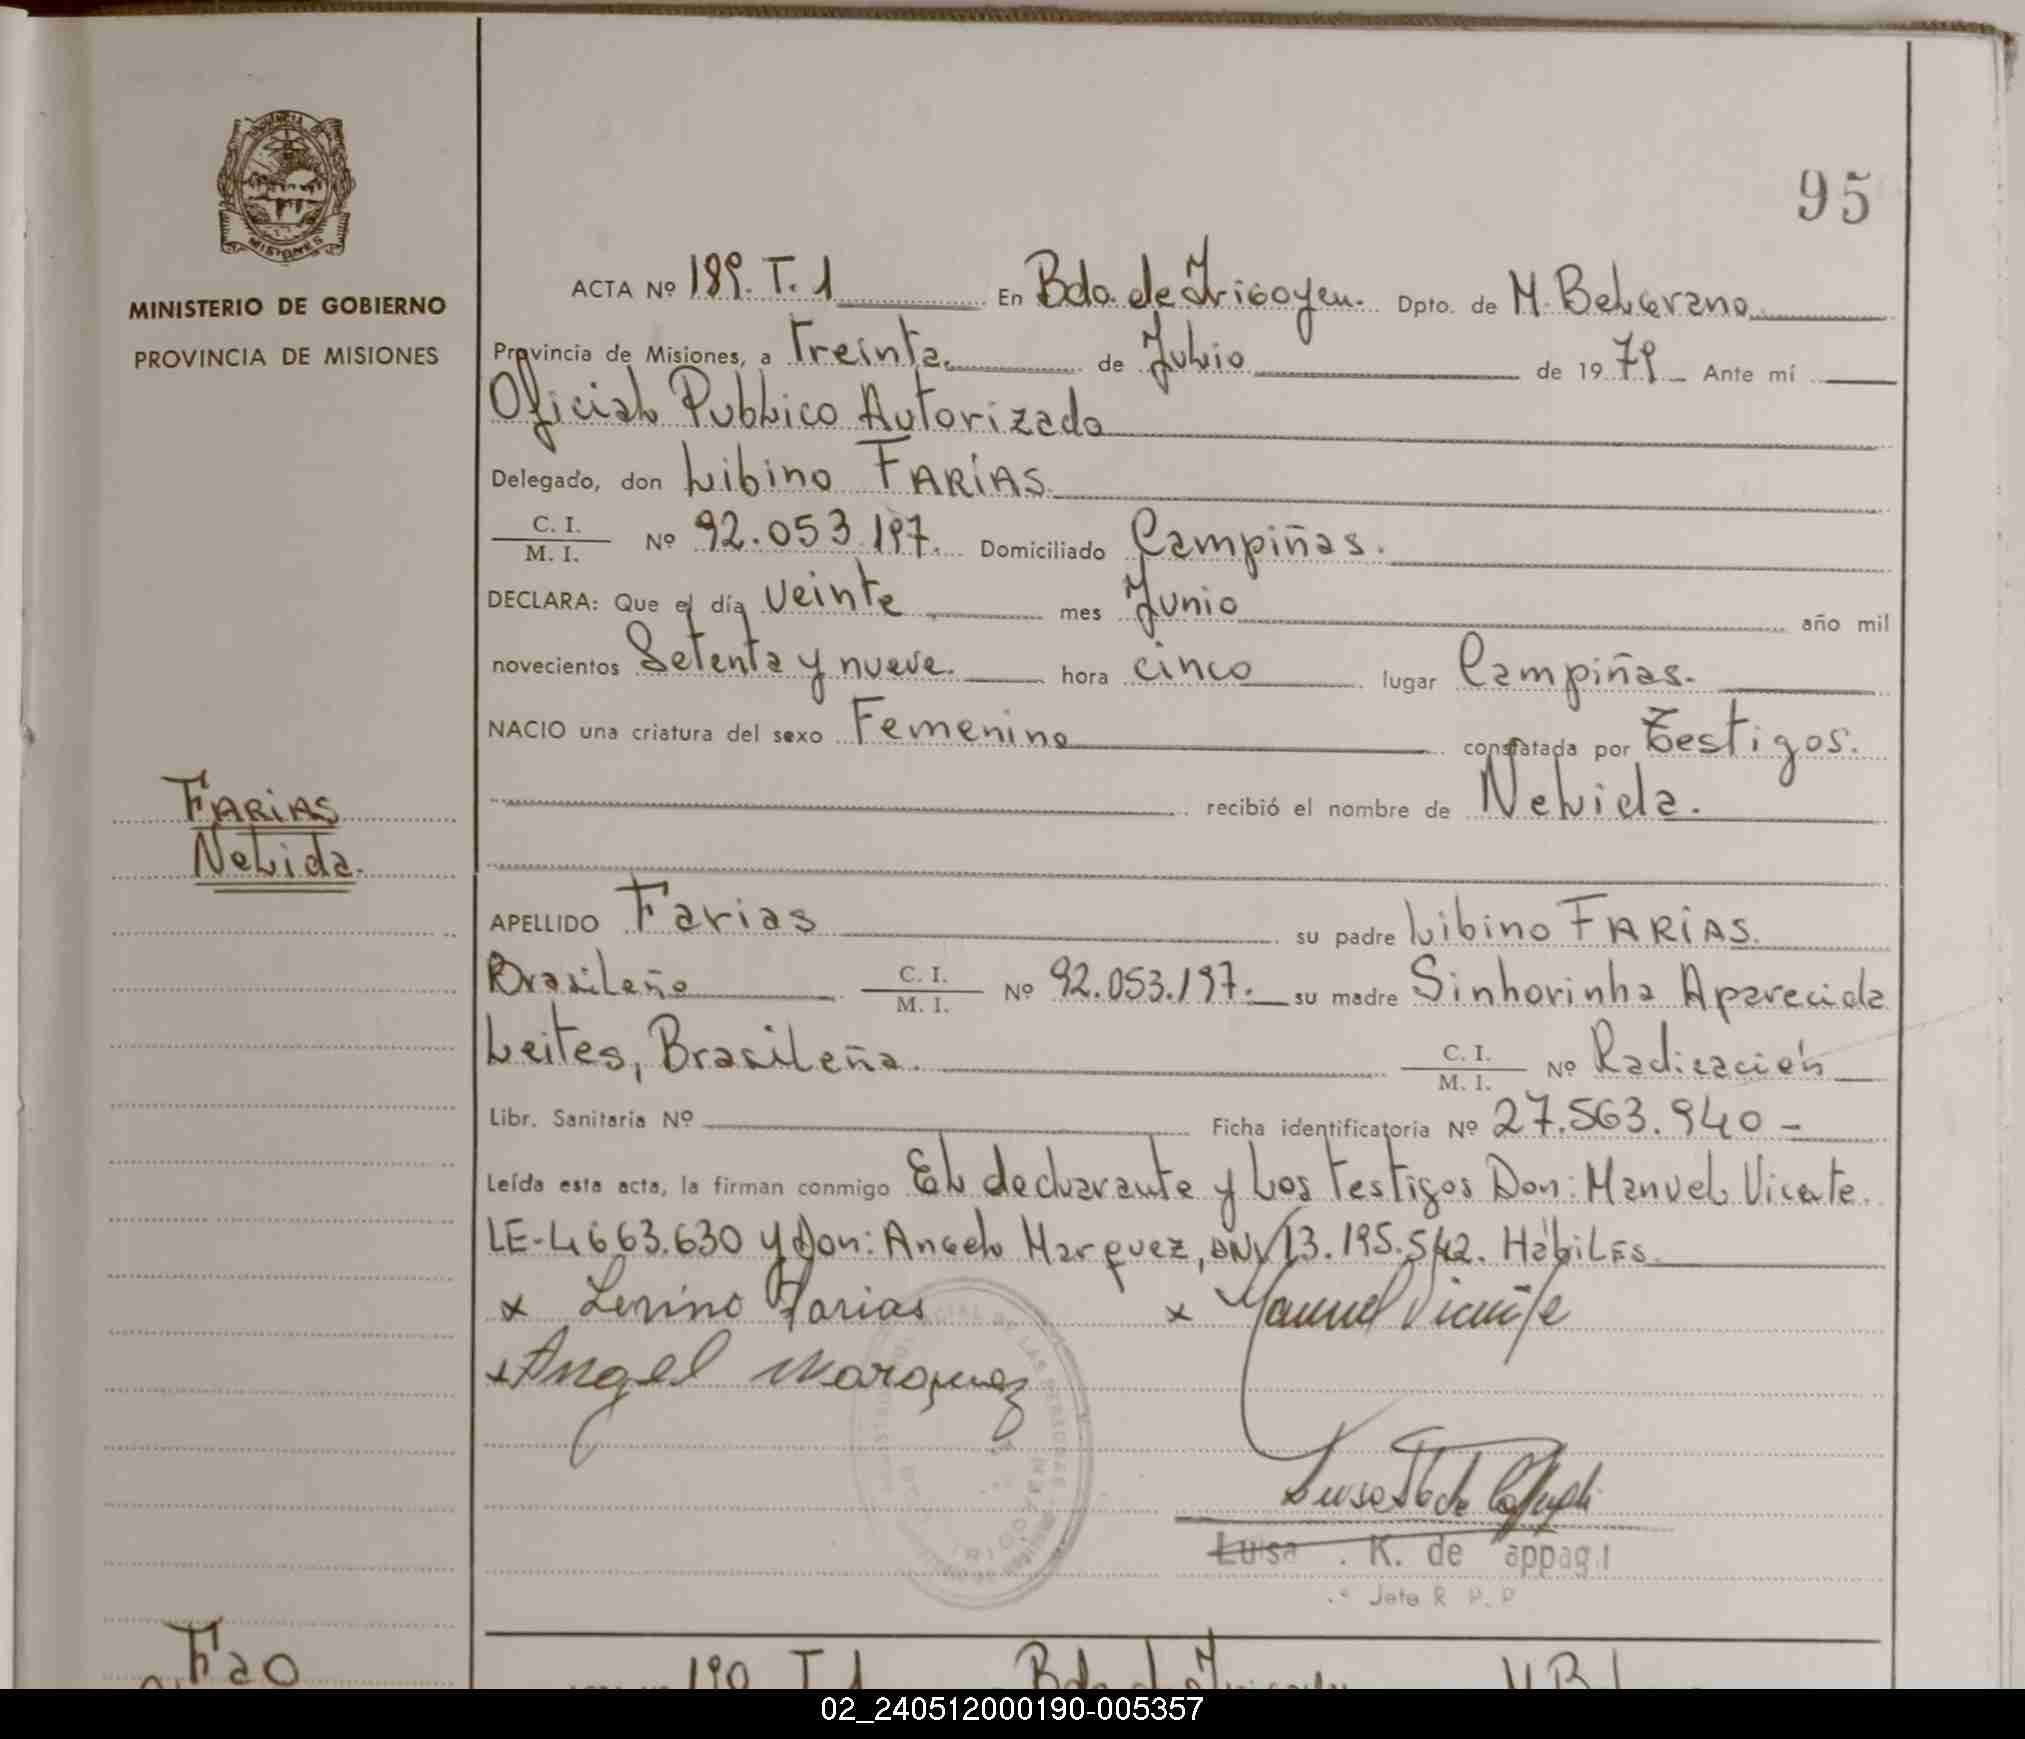 95
MINISTERIO DE GOBIERNO
PROVINCIA DE MISIONES
ACTA Nº 189. T. 1 En Bdo. de Irigoyen. Dpto. de M. Belgrano
Provincia de Misiones, a Treinta de Julio de 1979 Ante mí
Oficial Publico Autorizado
Delegado, don Libino FARIAS.
C. I.
M. I. Nº 92.053.197. Domiciliado Campiñas.
DECLARA: Que el día veinte mes Junio año mil
novecientos Setenta y nueve. hora cinco lugar Campiñas.
NACIO una criatura del sexo Femenino constatada por Testigos.
recibió el nombre de Nelida.
FARIAS
Nelida.
APELLIDO Farias su padre Libino FARIAS.
Brasileño C. I.
M. I. Nº 92.053.197. su madre Sinhorinha Aparecida
Leites, Brasileña. C. I.
M. I. Nº Radicación
Libr. Sanitaria Nº Ficha identificatoria Nº 27.563.940 -
Leída esta acta, la firman conmigo El declarante y los testigos Don: Manuel Vicente.
LE-4663.630 y Don: Angel Marquez, DNI 13.195.542. Hábiles
x Farias x Manuel Vicente
x Angel Marquez
Luisa K. de
Jefe R. P. P
Fao
190 T. 1 Bdo de Irigoyen
02_240512000190-005357